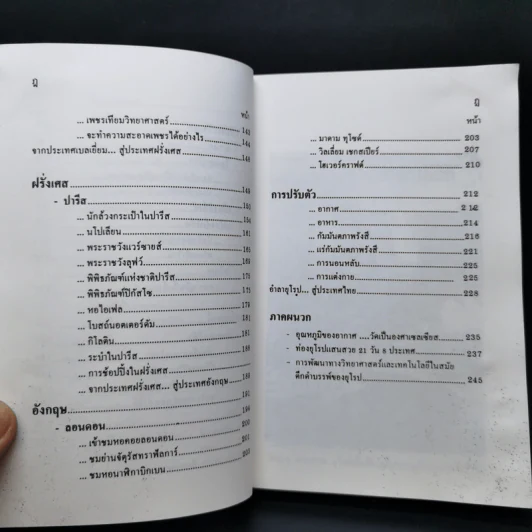 ฎ
หน้า
... เพชรเทียมวิทยาศาสตร์ 143
... จะทำความสะอาดเพชรได้อย่างไร 144
จากประเทศเบลเยี่ยม... สู่ประเทศฝรั่งเศส 146
ฝรั่งเศส
- ปารีส
... นักล้วงกระเป๋าในปารีส
... นโปเลียน
... พระราชวังแวร์ซายส์
... พระราชวังลุฟว์
... พิพิธภัณฑ์แห่งชาติปารีส
... พิพิธภัณฑ์ปิกัสโซ
... หอไอเฟล
... โบสถ์นอตเตอร์ดัม 181
... กิโลติน
... ระบำในปารีส
... การช้อปปิ้งในฝรั่งเศส
... จากประเทศฝรั่งเศส... สู่ประเทศอังกฤษ
อังกฤษ
- ลอนดอน
... เข้าชมหอคอยลอนดอน 200
... ชมย่านจัตุรัสทราฟัลการ์
... ชมหอนาฬิกาบิกเบน
ฏ
หน้า
... มาดาม ทุโซด์ 203
... วิลเลี่ยม เชกสเปียร์ 207
... โฮเวอร์คราฟต์ 210
การปรับตัว 212
... อากาศ 212
... อาหาร 214
... กัมมันตภาพรังสี 216
... แร่กัมมันตภาพรังสี 221
... การนอนหลับ 225
... การแต่งกาย 225
อำลายุโรป... สู่ประเทศไทย 228
ภาคผนวก
- อุณหภูมิของอากาศ ....วัดเป็นองศาเซลเซียส 235
- ท่องยุโรปแสนสวย 21 วัน 8 ประเทศ 237
- การพัฒนาทางวิทยาศาสตร์และเทคโนโลยีในสมัย
ดึกดำบรรพ์ของยุโรป 245